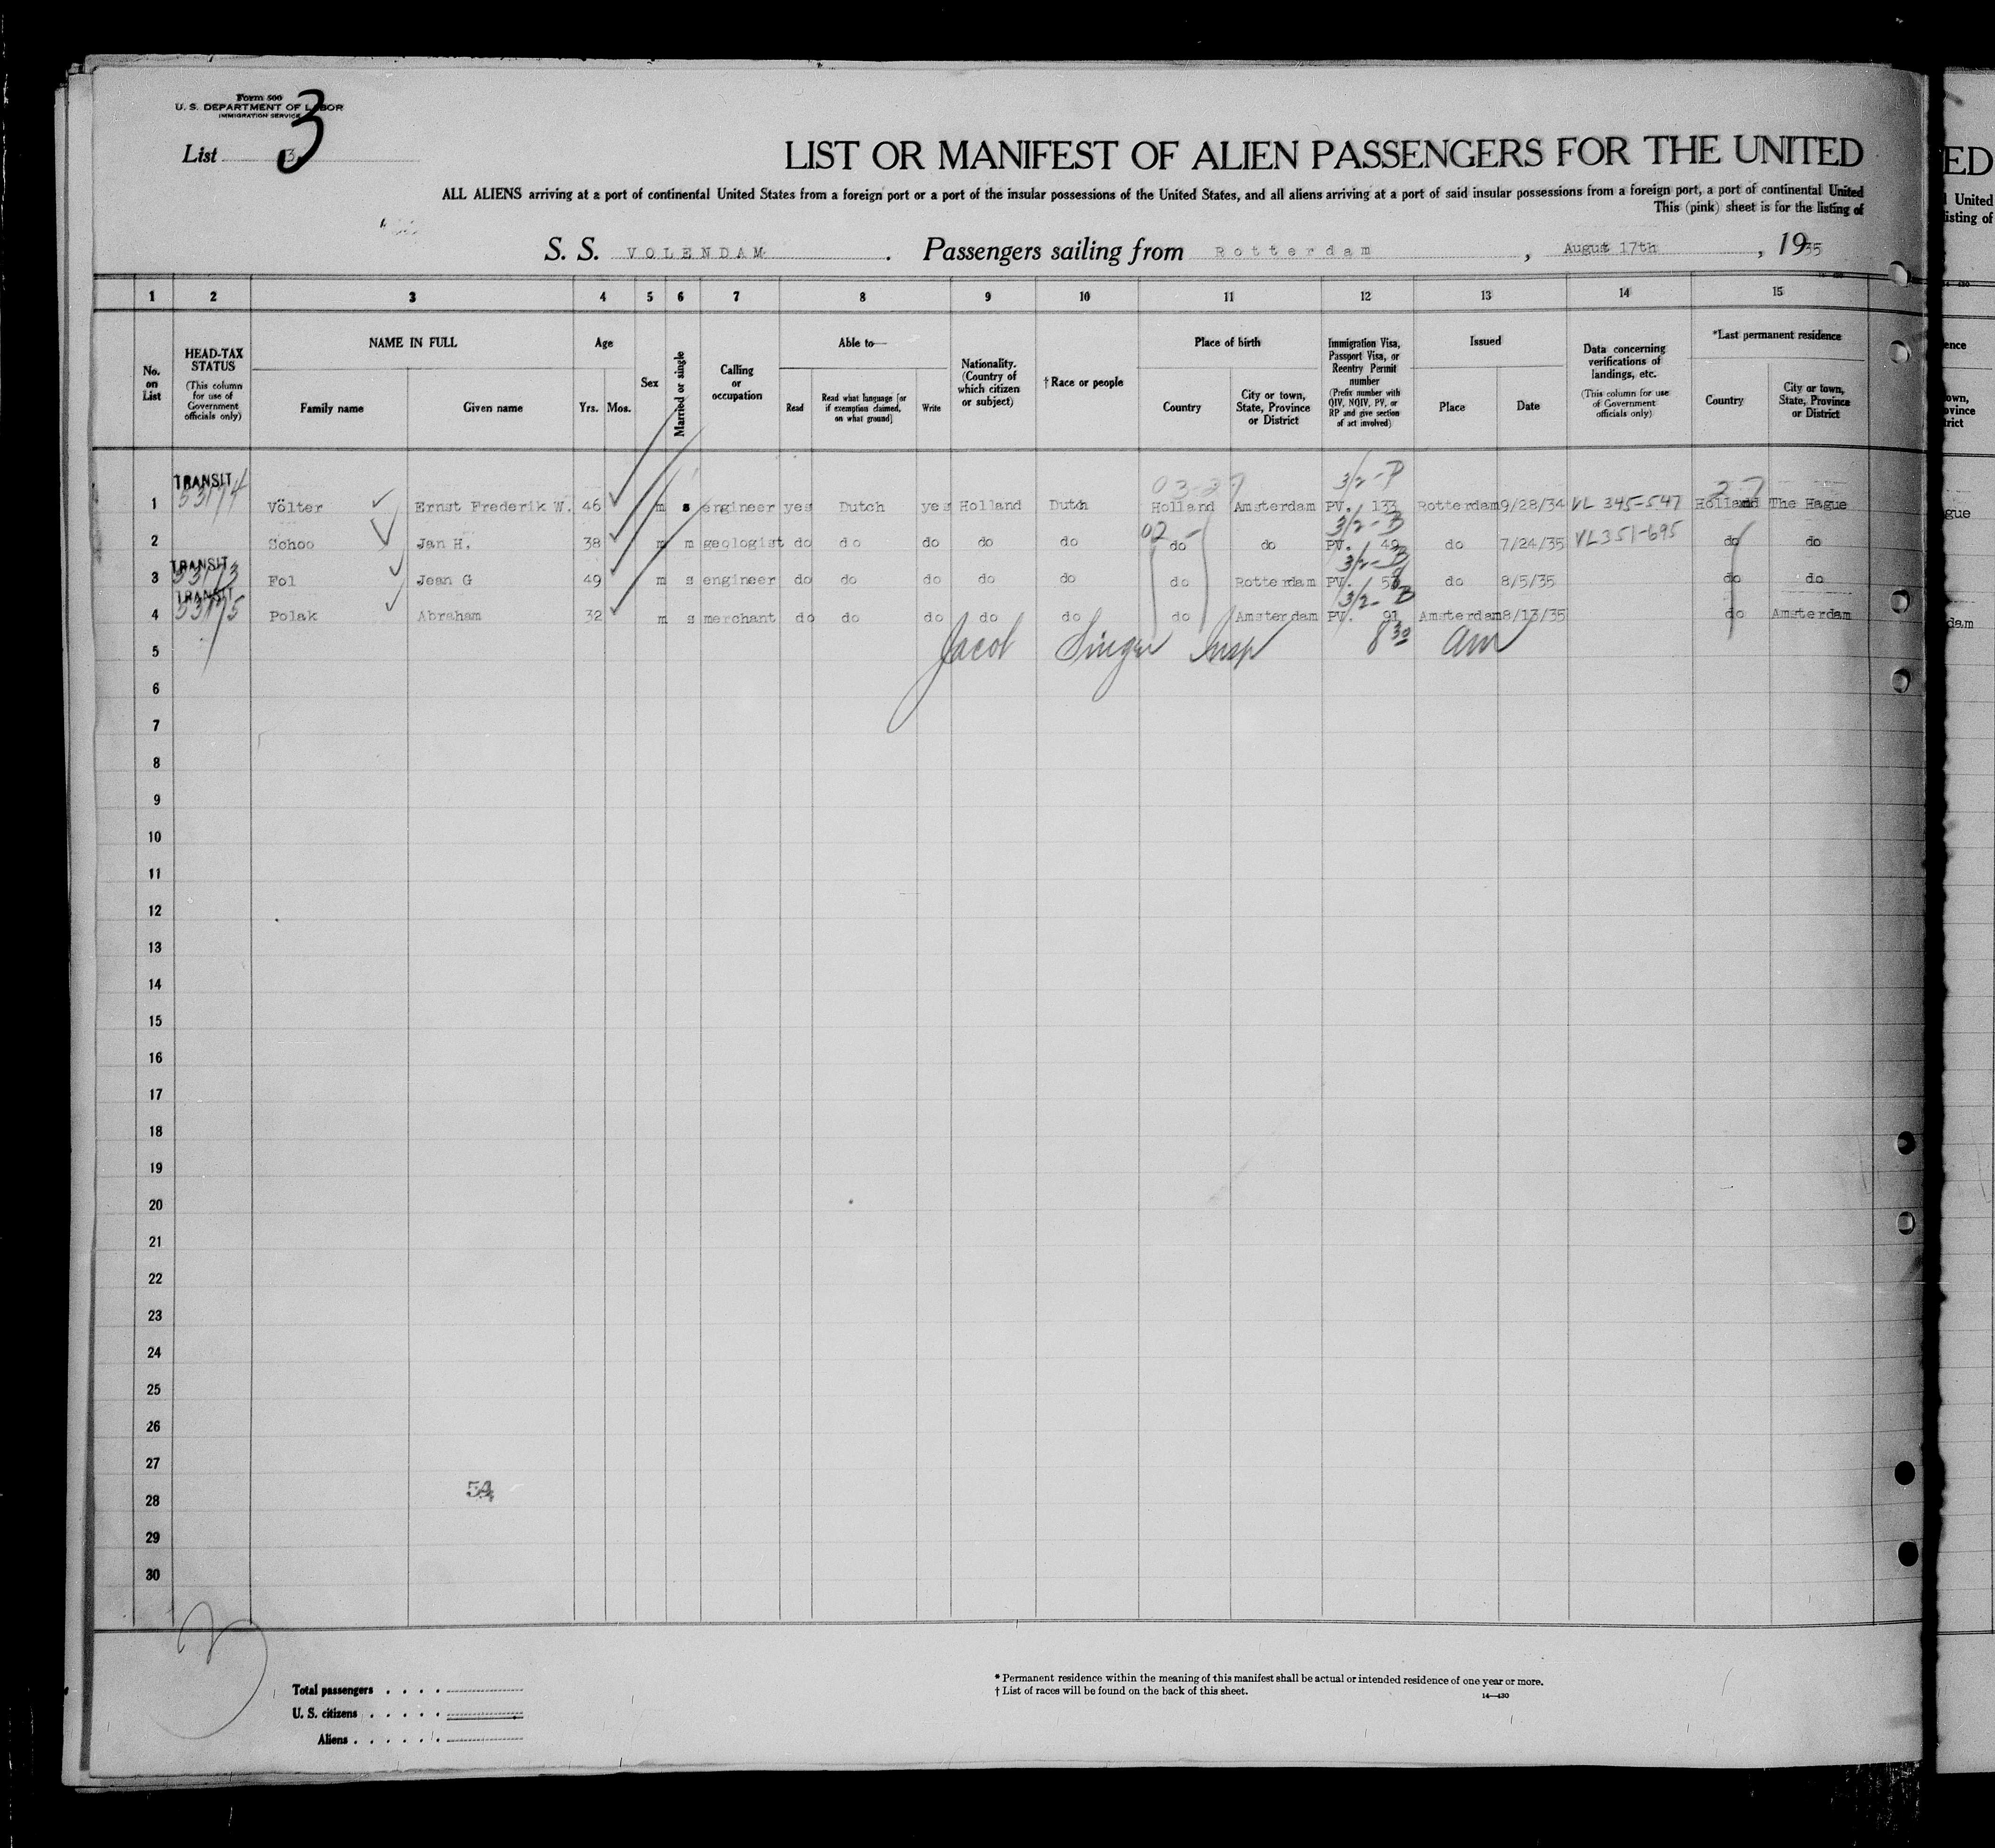 Form 500
U. S. DEPARTMENT OF LABOR
IMMIGRATION SERVICE
List 3 3
LIST OR MANIFEST OF ALIEN PASSENGERS FOR THE UNITED
ALL ALIENS arriving at a port of continental United States from a foreign port or a port of the insular possessions of the United States, and all aliens arriving at a port of said insular possessions from a foreign port, a port of continental United
This (pink) sheet is for the listing of
S. S. VOLENDAM . Passengers sailing from Rotterdam , August 17th , 1935
1 2 3 4 5 6 7 8 9 10 11 12 13 14 15
No. on List
HEAD-TAX STATUS (This column for use of Government officials only)
NAME IN FULL
Family name
Given name
Age
Yrs. Mos.
Sex
Married or single
Calling or occupation
Able to—
Read
Read what language [or if exemption claimed, on what ground]
Write
Nationality. (Country of which citizen or subject)
† Race or people
Place of birth
Country
City or town, State, Province or District
Immigration Visa, Passport Visa, or Reentry Permit number (Prefix number with QIV, NQIV, PV, or RP and give section of act involved)
Issued
Place
Date
Data concerning verifications of landings, etc. (This column for use of Government officials only)
*Last permanent residence
Country
City or town, State, Province or District
TRANSIT 03-27 3/2-P 27
1 53174 Völter Ernst Frederik W. 46 m s engineer yes Dutch yes Holland Dutch Holland Amsterdam PV. 133 Rotterdam 9/28/34 VL 345-547 Holland The Hague
02- 3/2-B
2 Schoo Jan H. 38 m m geologist do do do do do do do PV. 49 do 7/24/35 VL351-695 do do
TRANSIT 3/2-B
3 53173 Fol Jean G 49 m s engineer do do do do do do Rotterdam PV. do 8/5/35 do do
TRANSIT 3/2-B
4 53175 Polak Abraham 32 m s merchant do do do do do do Amsterdam PV. 91 Amsterdam 8/13/35 do Amsterdam
5 Jacob Singer Insp 8 30 am
6
7
8
9
10
11
12
13
14
15
16
17
18
19
20
21
22
23
24
25
26
27
54
28
29
30
Total passengers
U. S. citizens
Aliens
* Permanent residence within the meaning of this manifest shall be actual or intended residence of one year or more.
† List of races will be found on the back of this sheet.
14—430
ED
United
isting of
ence
own,
ovince
trict
gue
dam